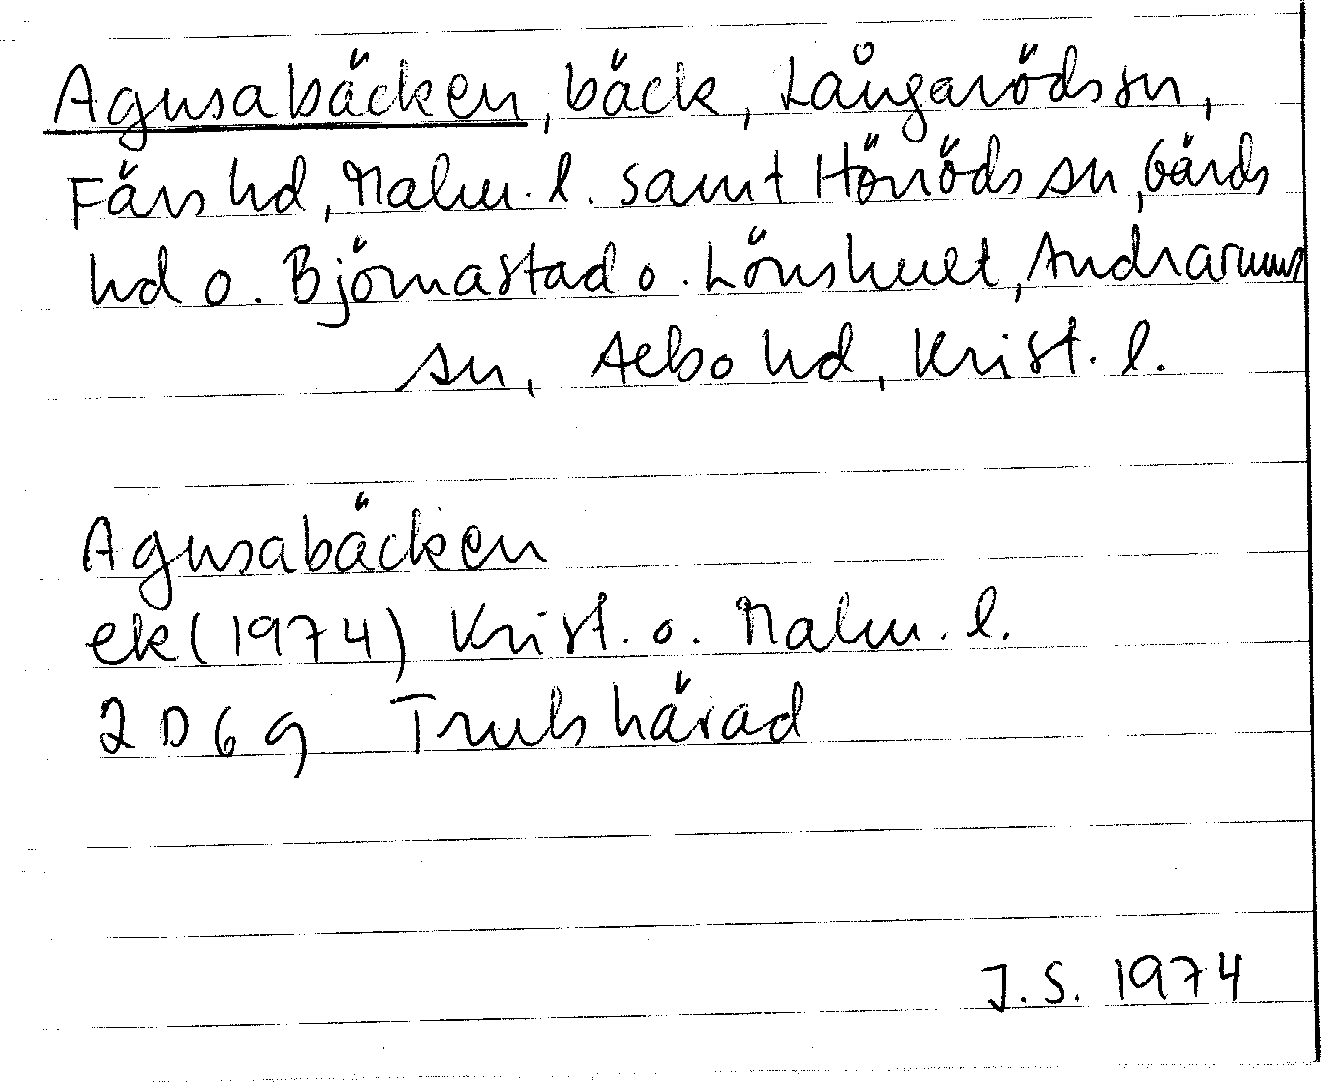 Agusabäcken, bäck, Långarödssn,
Färs hd, Malm. l. samt Hörröds sn, Gärds
hd o. Björnastad o. Lönshult, Andrarums
sn, Aelbo hd, Krist. l.
Agusabäcken
ek (1974) Krist. o. Malm. l.
2 D 6 g Truls härad
J.S. 1974